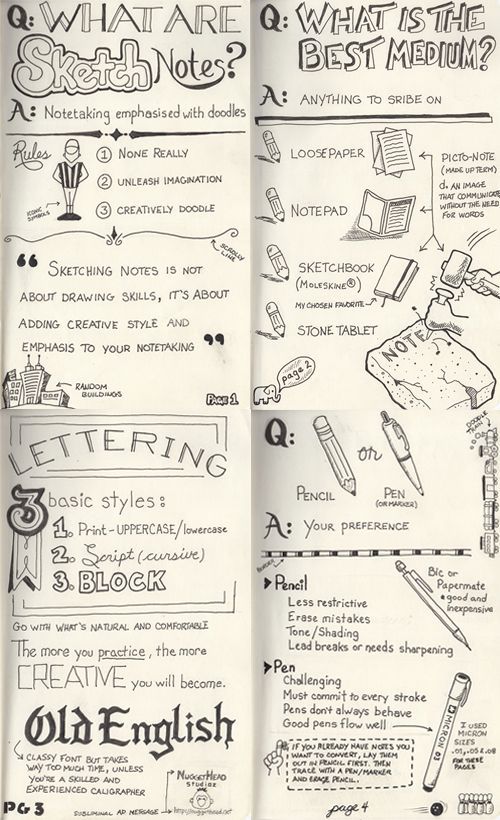 Q: WHAT ARE
Sketch Notes?
A: Notetaking emphasised with doodles
Rules
1 NONE REALLY
2 UNLEASH IMAGINATION
3 CREATIVELY DOODLE
ICONIC SYMBOLS
SCROLLY LINE
“ SKETCHING NOTES IS NOT
ABOUT DRAWING SKILLS, IT'S ABOUT
ADDING CREATIVE STYLE AND
EMPHASIS TO YOUR NOTETAKING ”
RANDOM
BUILDINGS
PAGE 1
Q: WHAT IS THE
BEST MEDIUM?
A: ANYTHING TO SRIBE ON
LOOSEPAPER
NOTEPAD
SKETCHBOOK
(MOLESKINE®)
MY CHOSEN FAVORITE
STONE TABLET
PICTO-NOTE
(MADE UP TERM)
d. AN IMAGE
THAT COMMUNICATE
WITHOUT THE NEED
FOR WORDS
NOTE
page 2
LETTERING
3 basic styles:
1. Print-UPPERCASE/lowercase
2. Script (cursive)
3. BLOCK
GO WITH WHAT'S NATURAL AND COMFORTABLE
The more you practice, the more
CREATIVE you will become.
Old English
CLASSY FONT BUT TAKES
WAY TOO MUCH TIME, UNLESS
YOU'RE A SKILLED AND
EXPERIENCED CALIGRAPHER
NUGGETHEAD
STUDIOZ
PG 3
SUBLIMINAL AD MESSAGE
http://nuggethead.net
Q: PENCIL or PEN
(OR MARKER)
DOODLE TRAIN
A: YOUR PREFERENCE
BORDER
Pencil
Less restrictive
Erase mistakes
Tone/Shading
Lead breaks or needs sharpening
Bic or
Papermate
good and
inexpensive
Pen
Challenging
Must commit to every stroke
Pens don't always behave
Good pens flow well
MICRON 03
I USED
MICRON
SIZES
.01, .05 & .08
FOR THESE
PAGES
IF YOU ALREADY HAVE NOTES YOU
WANT TO CONVERT, LAY THEM
OUT IN PENCIL FIRST. THEN
TRACE WITH A PEN/MARKER
AND ERASE PENCIL.
page 4